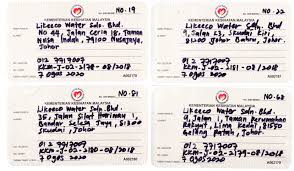 NO. 19
KEMENTERIAN KESIHATAN MALAYSIA
Likeeco Water Sdn. Bhd.
Jalan Ceria 18, Taman
Nusa Indah, 79100 Nusajaya,
Johor
012 7717007
KKM-J-02-2178-08/2018
7 Ogos 2020
NO. 22
KEMENTERIAN KESIHATAN MALAYSIA
Likeeco Water Sdn. Bhd.
Jalan Skudai Kiri,
81200 Johor Bahru, Johor.
012 7717007
7 Ogos 2020
NO. 51
KEMENTERIAN KESIHATAN MALAYSIA
Likeeco Water Sdn. Bhd.
35, Jalan Silat Harimau 1,
Bandar Selesa Jaya, 81300
Skudai, Johor
012 7717007
7 Ogos 2020
NO. 68
KEMENTERIAN KESIHATAN MALAYSIA
Likeeco Water Sdn. Bhd.
Jalan 1, Taman Perumahan
Rakyat, Lima Kedai, 81550
Gelang Patah, Johor
012 7717007
7 Ogos 2020